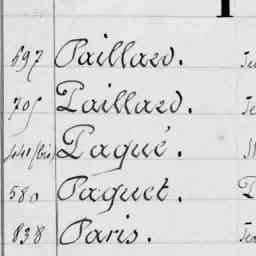 597 Paillard.
705 Paillard.
441 (bis) Paqué.
580 Paquet.
838 Paris.